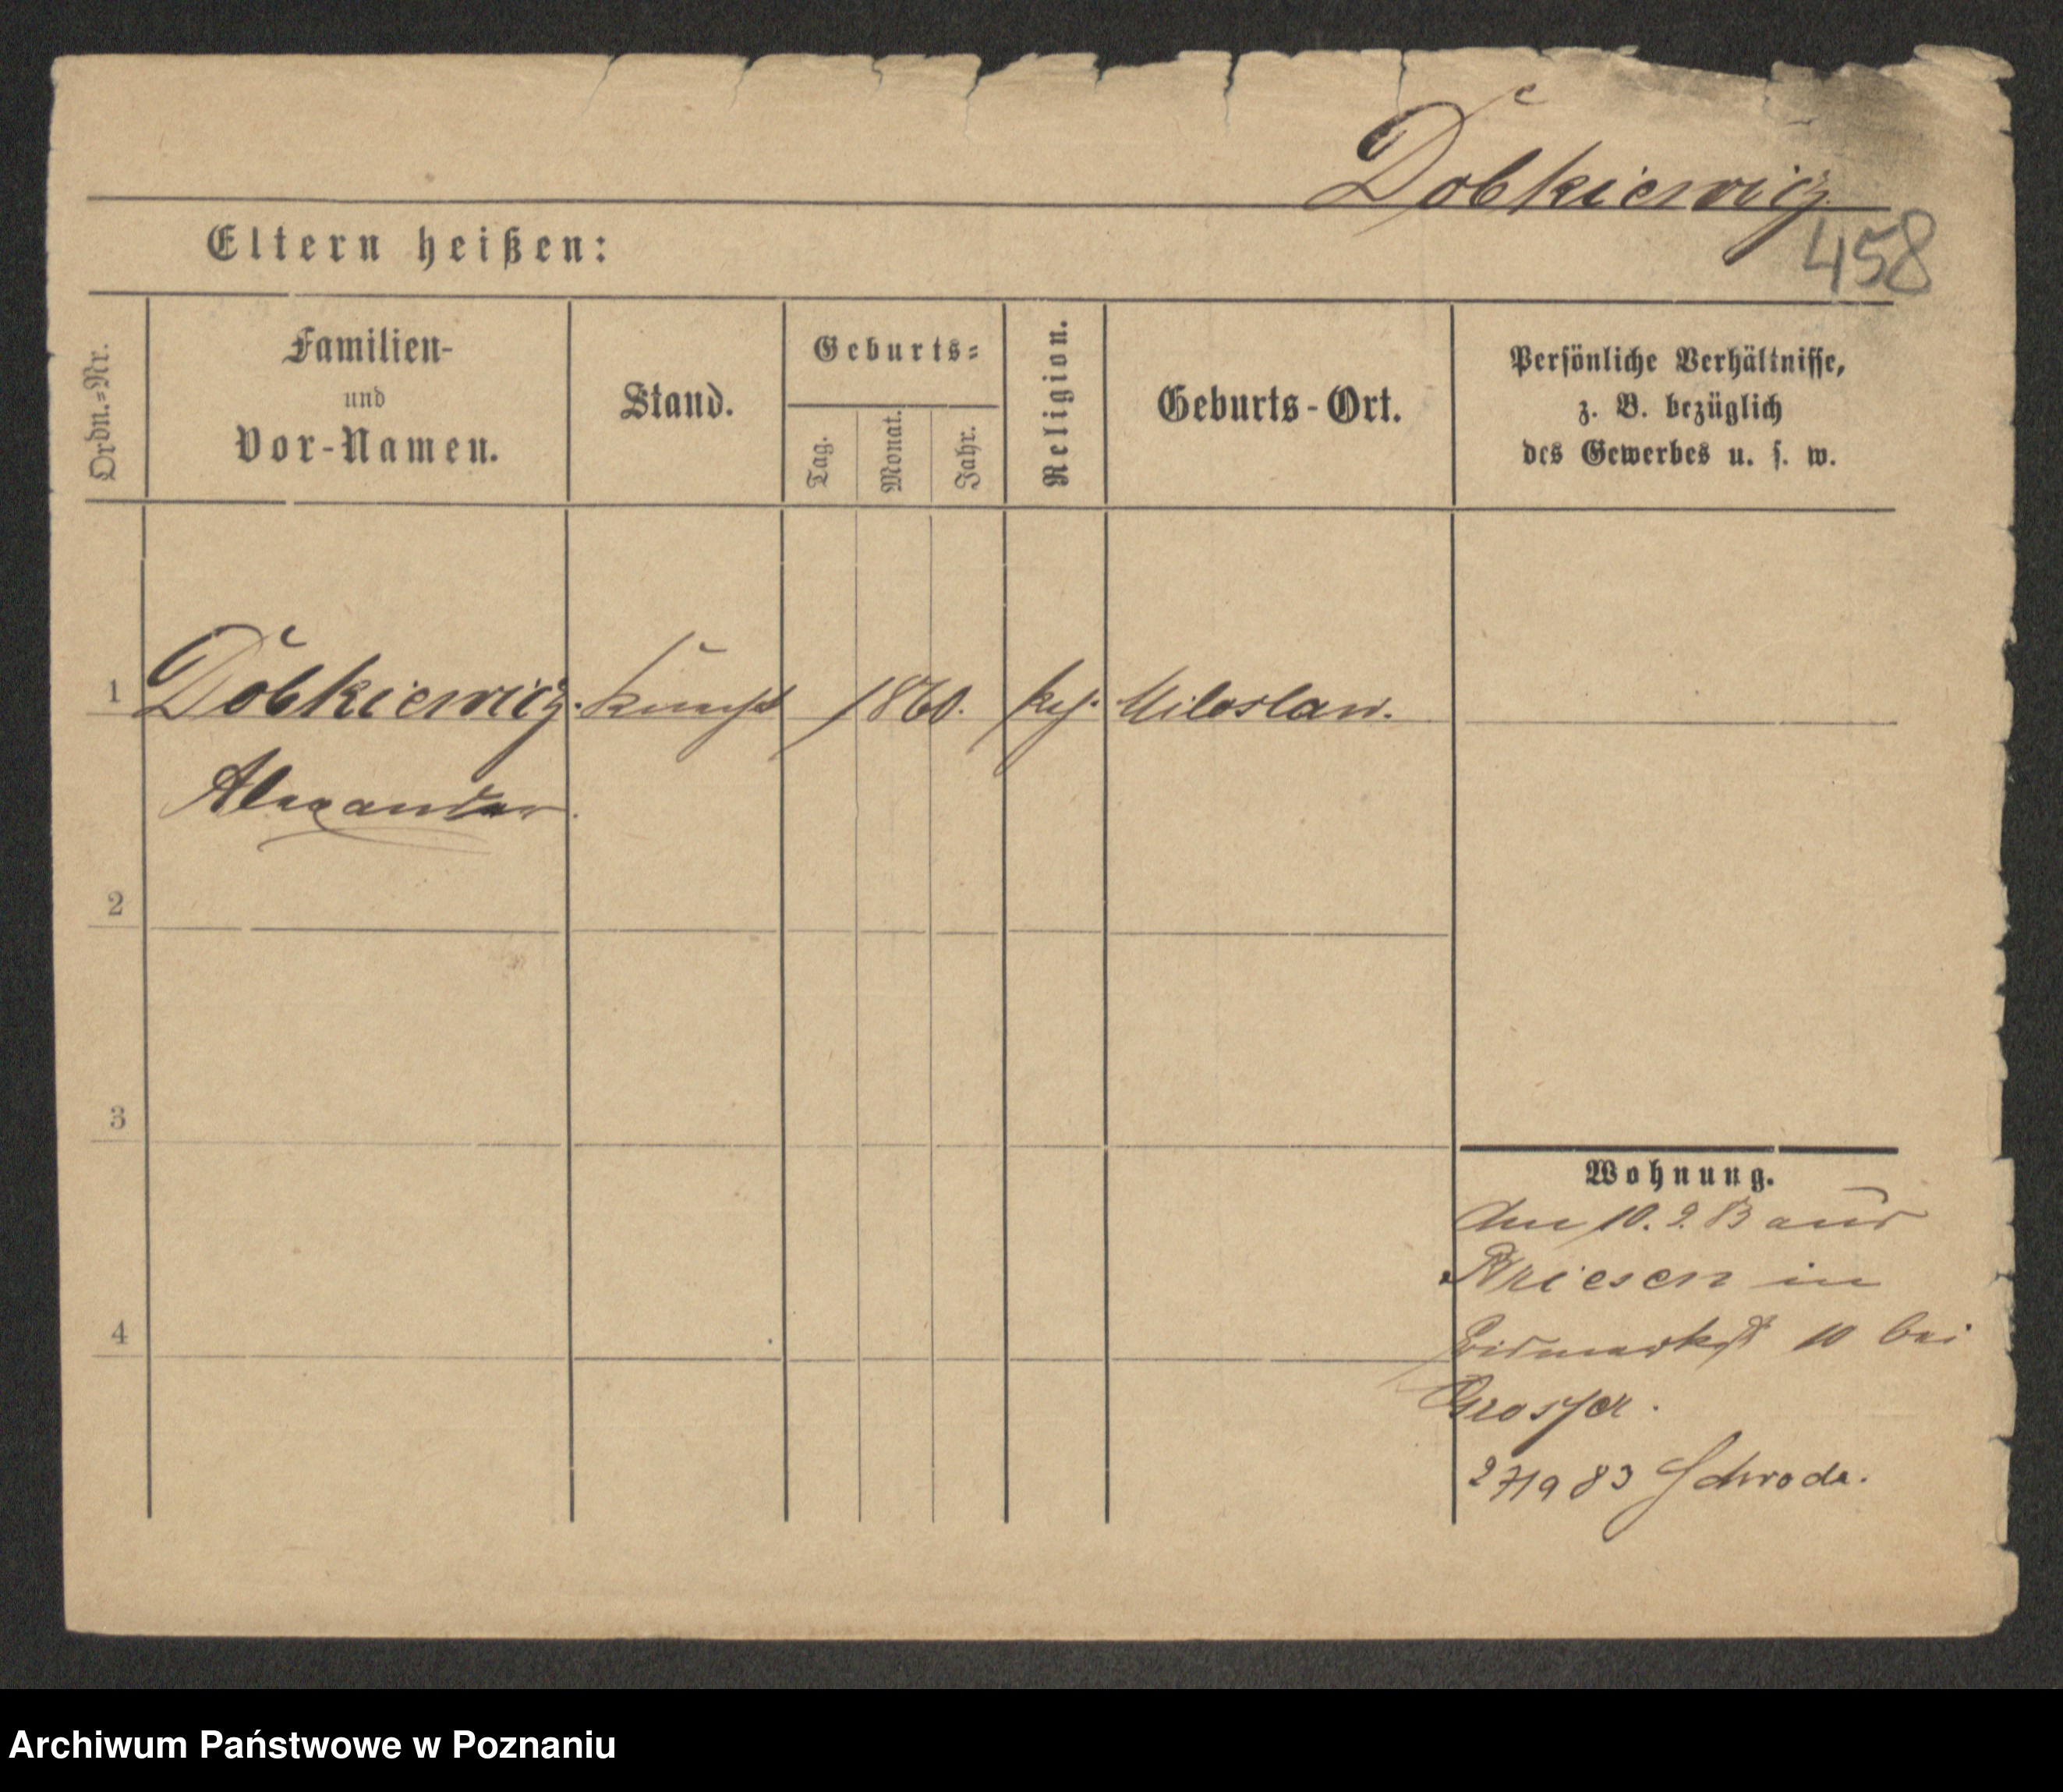 Dobkiewicz
458
Eltern heißen:
Ordn.=Nr.
Familien-
und
Vor-Namen.
Stand.
Geburts=
Tag.
Monat.
Jahr.
Religion.
Geburts-Ort.
Persönliche Verhältnisse,
z. B. bezüglich
des Gewerbes u. s. w.
1 Dobkiewicz. 1860. Miloslaw.
Alexander.
2
3
4
Wohnung.
Am 10. 9. 83 aus
Briesen in
Bismarkst 10 bei
27/9 83 Schroda.
Archiwum Państwowe w Poznaniu